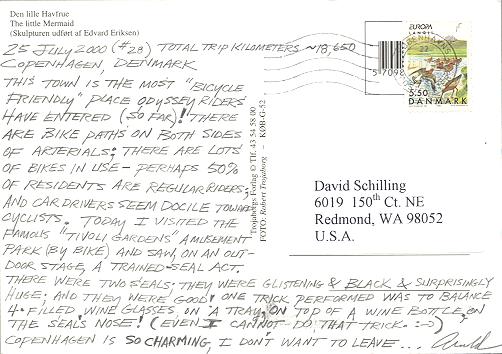 Den lille Havfrue
The little Mermaid
(Skulpturen udført af Edvard Eriksen)
25 JULY 2000 (#28) TOTAL TRIP KILOMETERS ~18,650
COPENHAGEN, DENMARK
THIS TOWN IS THE MOST "BICYCLE
FRIENDLY" PLACE ODYSSEY RIDERS
HAVE ENTERED (SO FAR)! THERE
ARE BIKE PATHS ON BOTH SIDES
OF ARTERIALS; THERE ARE LOTS
OF BIKES IN USE - PERHAPS 50%
OF RESIDENTS ARE REGULAR RIDERS;
AND CAR DRIVERS SEEM DOCILE TOWARD
CYCLISTS. TODAY I VISITED THE
FAMOUS "TIVOLI GARDENS" AMUSEMENT
PARK (BY BIKE) AND SAW, ON AN OUT-
DOOR STAGE, A TRAINED-SEAL ACT.
THERE WERE TWO SEALS; THEY WERE GLISTENING & BLACK & SURPRISINGLY
HUGE; AND THEY WERE GOOD! ONE TRICK PERFORMED WAS TO BALANCE
4 FILLED WINE GLASSES, ON A TRAY, ON TOP OF A WINE BOTTLE, ON
THE SEAL'S NOSE! (EVEN I CANNOT DO THAT TRICK. :-)
COPENHAGEN IS SO CHARMING, I DON'T WANT TO LEAVE... Arnold
Trojaborgs Forlag © Tlf. 43 54 58 00
FOTO: Robert Trojaborg K08-G-52
EUROPA
5.50
DANMARK
57098
David Schilling
6019 150th Ct. NE
Redmond, WA 98052
U.S.A.